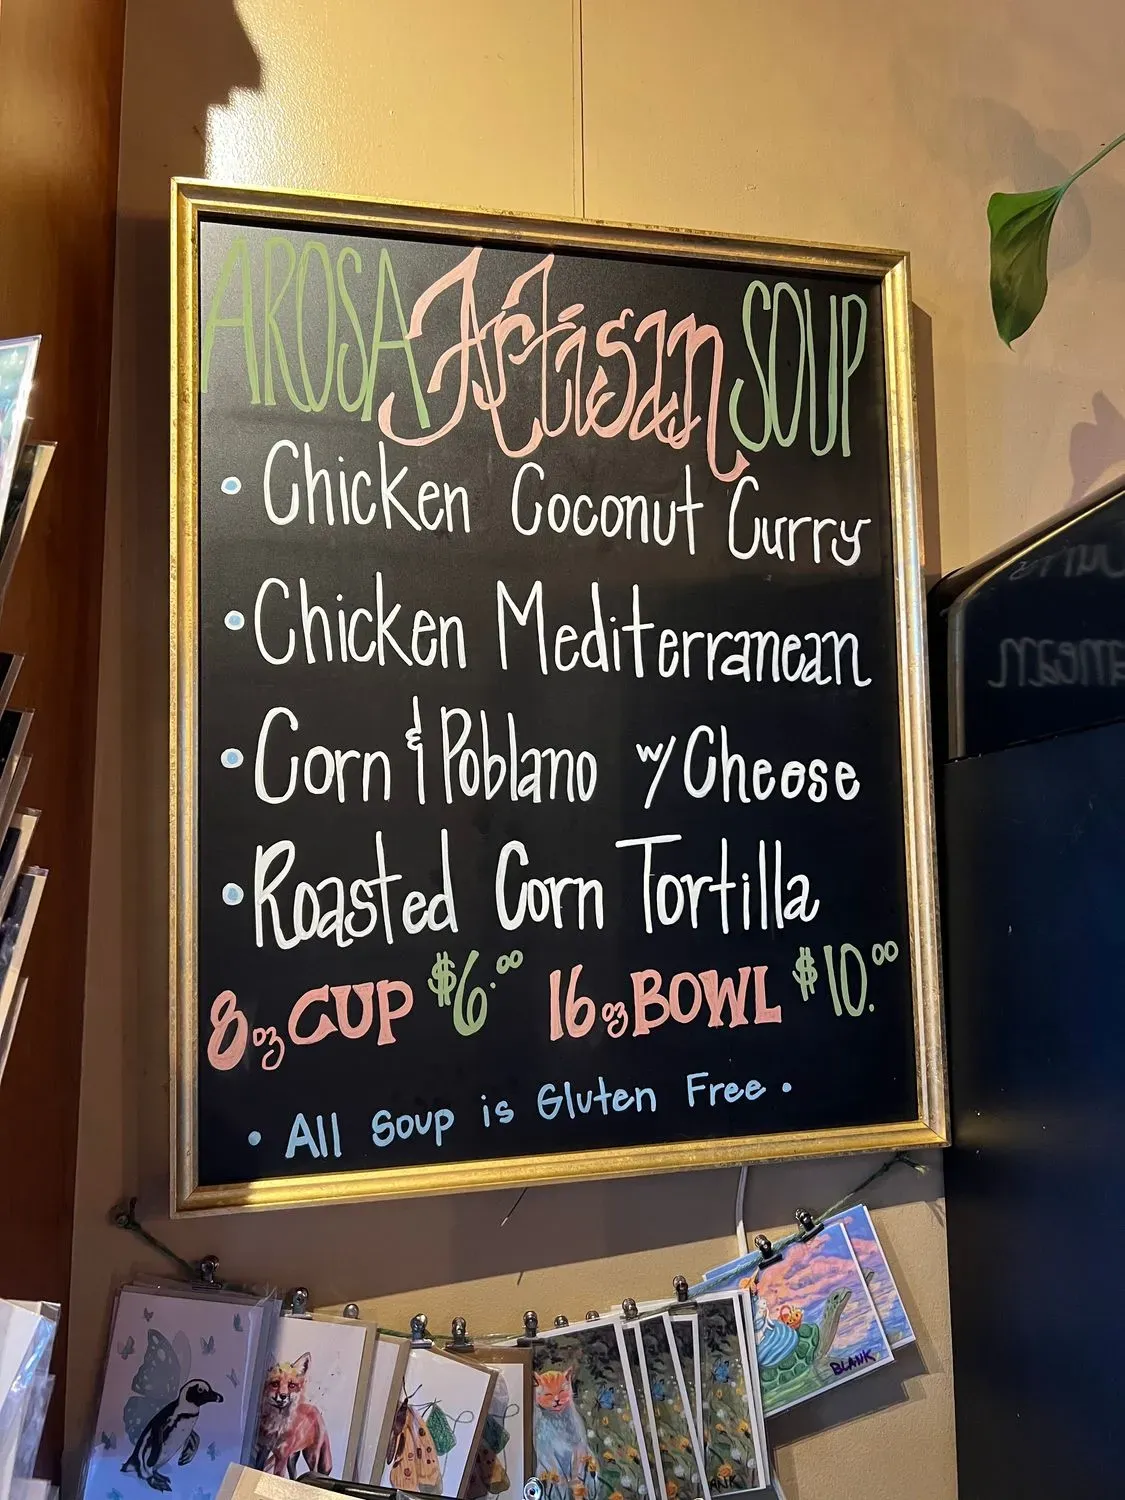 AROSA Artisan SOUP
• Chicken Coconut Curry
• Chicken Mediterranean
• Corn & Poblano w/ Cheese
• Roasted Corn Tortilla
8oz CUP $6.00 16oz BOWL $10.00
• All Soup is Gluten Free •
BLANK